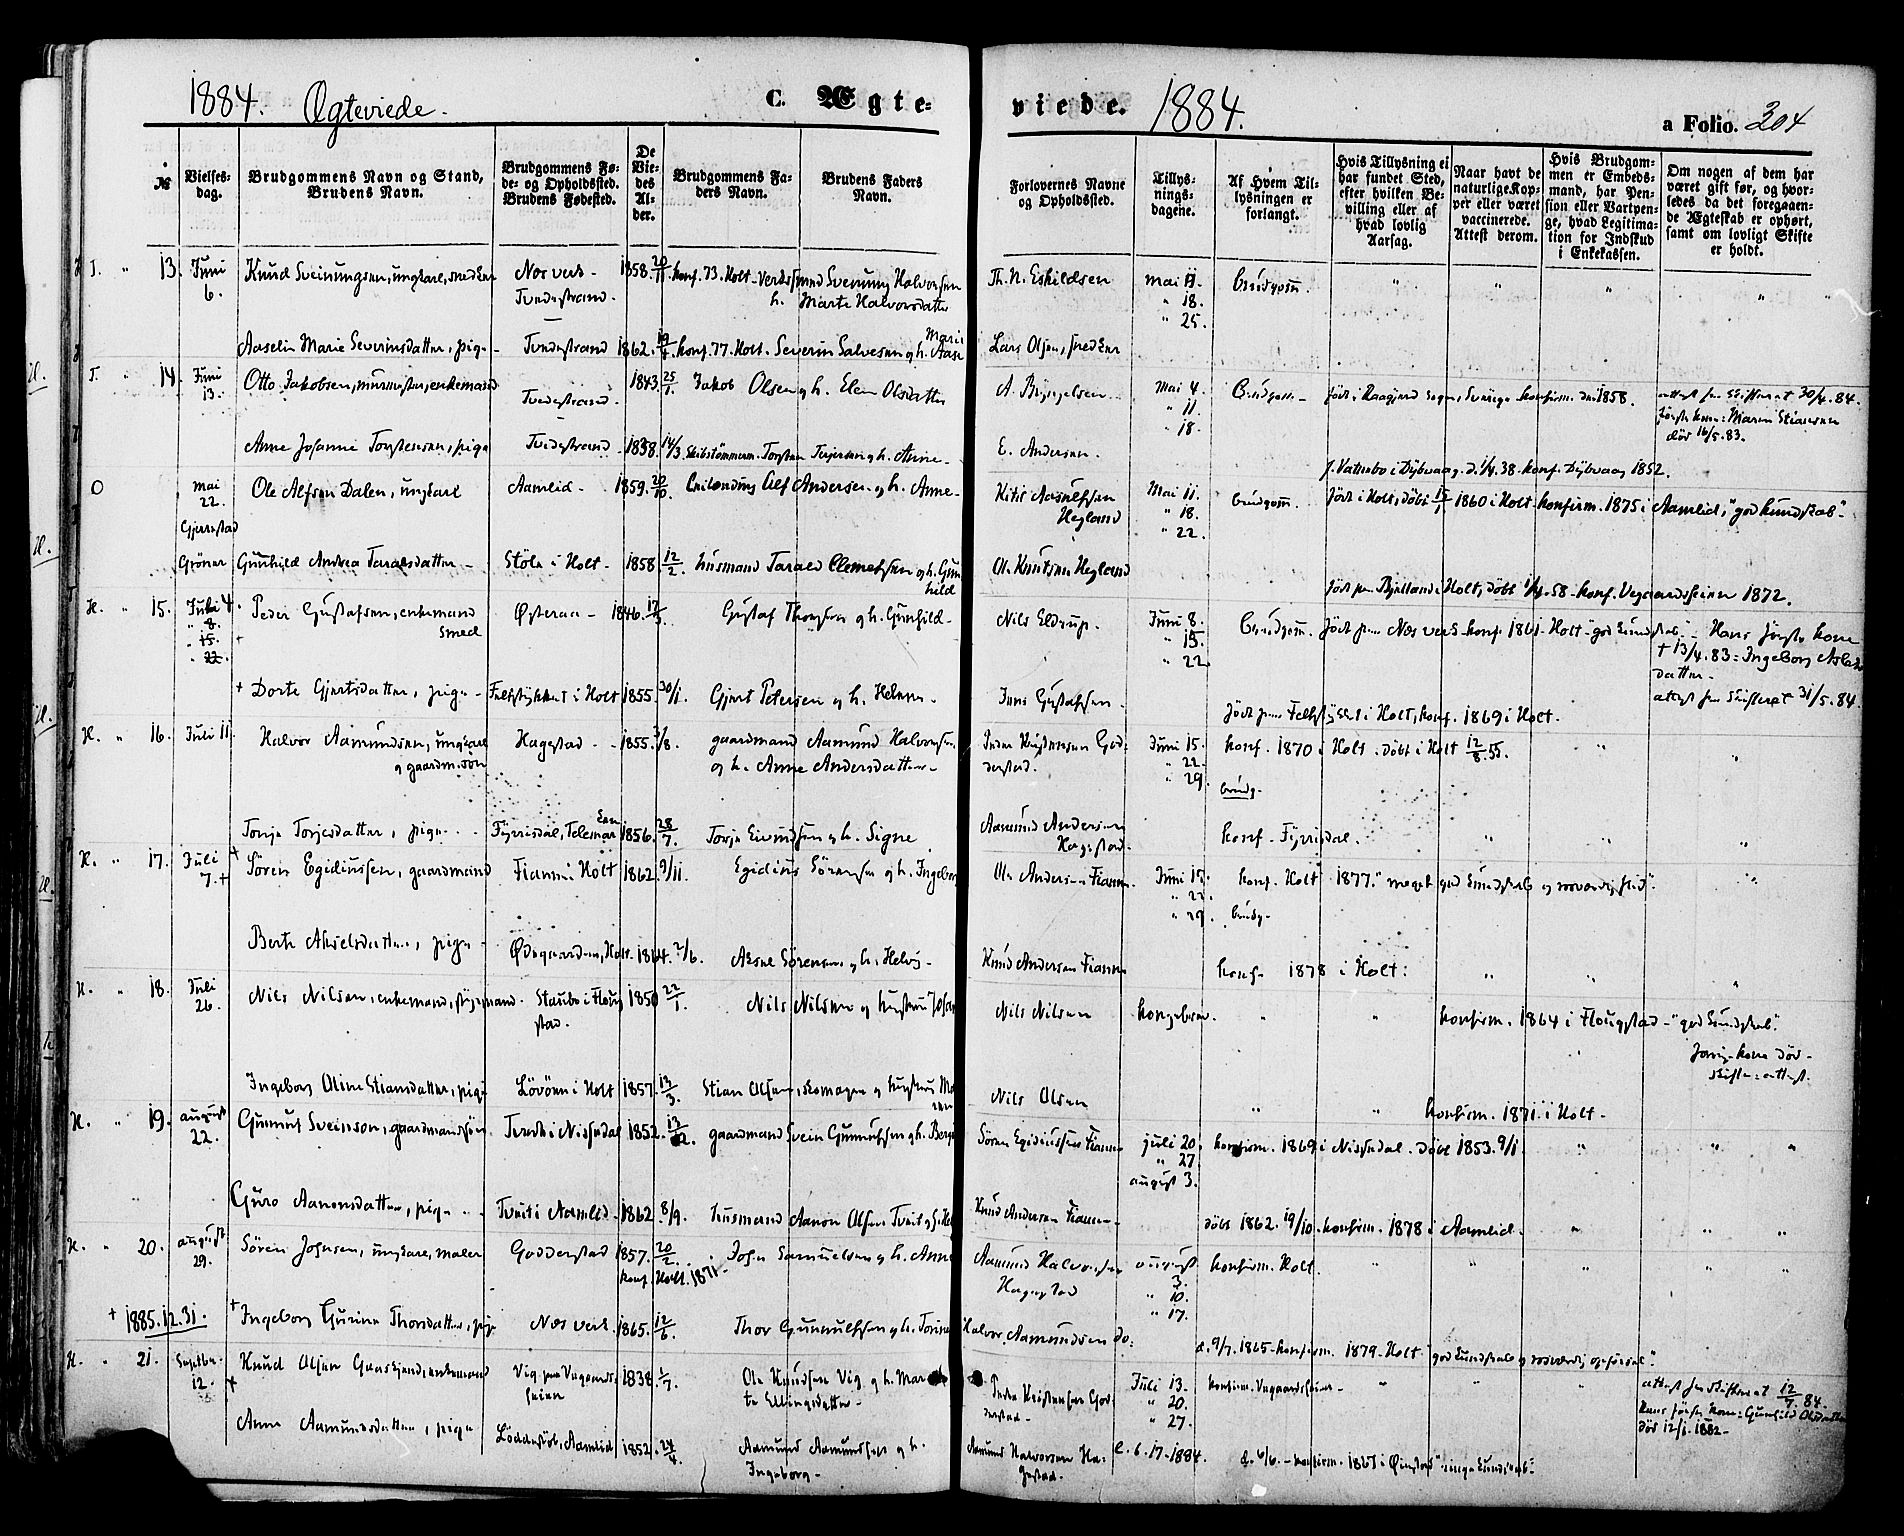 1884. Ægteviede.
C. Ægte-
viede. 1884.
a Folio. 304
№
Vielses-
dag.
Brudgommens Navn og Stand,
Brudens Navn.
Brudgommens Fø-
de- og Opholdssted.
Brudens Fødested.
De
Vie-
des
Al-
der.
Brudgommens Fa-
ders Navn.
Brudens Faders
Navn.
Forlovernes Navne
og Opholdssted.
Tillys-
nings-
dagene.
Af Hvem Til-
lysningen er
forlangt.
Hvis Tillysning ei
har fundet Sted,
efter hvilken Be-
villing eller af
hvad lovlig
Aarsag.
Naar havt de
naturlige Kop-
per eller været
vaccinerede.
Attest derom.
Hvis Brudgom-
men er Embeds-
mand, har Pen-
sion eller Vartpen-
ge, hvad Legitima-
tion for Indskud
i Enkekassen.
Om nogen af dem har
været gift før, og hvor-
ledes da det foregaaen-
de Ægteskab er ophørt,
samt om lovligt Skifte
er holdt.
T. " 13. Juni 6. Knud Sveinungsen, ungkarl, snedker Næs verk - Tvedestrand. 1858. 20/11 konf. 73. Holt - Sveinung Halvorsen
h. Marte Halvorsdatter
Th. N. Eskildsen mai 11. Brudgom. " " " "
" 18.
" 25.
Aaselin Marie Severinsdatter, pige - Tvedestrand 1862. konf. 77. Holt. Severin Salvesen og h. Marie Aase
Lars Olsen, snedker
T. " 14. Juni 13. Otto Jakobsen, murmester, enkemand Tvedestrand. 1843. 25/1 Jakob Olsen og h. Elen Olsdatter
mai 4. Brudgom - født i sogn, Sverige konfirm. 1858. attest fra skifteret 30/4. 84.
" 11. første kone: Maren
" 18. død 16/5. 83.
Anne Josefine Torstensen, pige Tvedestrand 1838. 14/3. Skibstømmerm. Torsten Terjesen og h. Anne -
E. Andersen.
f. Vatnebo i Dybvaag. d. 1/4. 38. konf. Dybvaag 1852.
O mai 22. Gjerrestad Ole Alfsen Dalen, ungkarl Aamlid - 1859. 20/10. Alf Andersen og h. Anne -
Heyland Mai 11. brudgom. født i Holt, døbt 1860 i Holt - konfirm. 1875 i Aamlid, "god kundskab" -
" 18.
" 22.
Gunhild Andrea Taraldsdatter - Støle i Holt - 1858. 12/2. husmand Tarald Clemetsen og h. Gunhild
Ole Knutsen Heyland
født i Holt, døbt 1/4. 58 - konf. Vegaardsheien 1872.
H. " 15. Juli 4. Peder Gustafsen, enkemand
smed
" 8.
" 15.
" 22.
Østeraa - 1846. Gustaf og h. Gunhild -
Nils Eldrup. Juni 8. Brudgom. født paa Næs verk - konf. 1861 - Holt "god kundskab." - Hans første kone
" 15. † 13/4. 83: Ingeborg
" 22. datter -
attest fra skifteret 31/5. 84.
+ Dorte Gjertsdatter, pige - i Holt 1855. 30/1. Gjert Petersen og h. Helene -
Jens Gustafsen -
født paa i Holt, konf. 1869 i Holt.
H. " 16. Juli 11. Halvor Aamundsen, ungkarl
og gaardm. søn
Hagestad - 1855. /8. gaardmand Aamund Halvorsen
og h. Anne Andersdatter -
Godderstad. Juni 15. konf. 1870 i Holt. døbt i Holt 12/8 55. " "
" 22.
" 29. brudg.
Tone Torjesdatter, pige - Fyrrisdal, Telemarken 1856. 28/7. Torje Eivindsen og h. Signe
Aamund Andersen
Hagestad.
konf. Fyrrisdal. " " "
H. " 17. Juli 7. + Søren Egidiussen, gaardmand Fiane i Holt 1862. 9/11. Egidius Sørensen og h. Ingeborg
Ole Andersen Fiane Juni 15. konf. Holt 1877. "meget god kundskab og
" 22.
" 29. brudg.
Berte Akselsdatter, pige - Ødegaarden, Holt. 1864. 2/6. Aksel Sørensen og h. Helvig -
Knud Andersen Fiane
konf. 1878 i Holt. " " "
H. " 18. Juli 26. Nils Nilsen, enkemand, styrmand. Staubø i Flougstad. 1850 22/1. Nils Nilsen og hustru
Nils Nilsen kongebrev. " " konfirm. 1864 i Flougstad - "god kundskab".
forrige kone død -
skifteattest.
Ingeborg Oline Stiansdatter, pige Løvøen i Holt 1857. 13/3. Stian Olsen, skomager og hustru
Nils Olsen
" " konfirm. 1871 i Holt -
H. " 19. august 22. Gunnuf Sveinsson, gaardmandssøn i Nissedal 1852. gaardmand Svein Gunnufsen og h. Berge
Søren Egidiussen Fiane juli 20. konfirm. 1869 i Nissedal. døbt 1853. 9/1. " " "
" 27
august 3.
Guro Aanonsdatter, pige - Tveit i Aamlid - 1862 8/9. husmand Aanon Olsen Tveit og h.
Knud Andersen Fiane -
døbt 1862. 19/10. konfirm. 1878 i Aamlid. " " "
H. " 20. august 29. Søren Johnsen, ungkarl, maler Godderstad 1857. 20/2. John Samuelsen og h. Anne
konf. Holt. 1871 -
Aamund Halvorsen
Hagestad
august 3. konfirm. Holt. " " " "
" 10.
" 17.
† 1885. 12. 31. + Ingeborg Gurine Thorsdatter, pige Næs verk. 1865. 12/6. Thor Gunnulfsen og h. Torine
Halvor Aamundsen do:
d. 9/7. 1865 - konfirm. 1879 - Holt "god kundskab og
H. " 21. Septbr. 12. + Knud Olsen enkemand Vig paa Vegaardsheien 1838. 1/7. Ole Knudsen Vig og h. Marte Ellingsdatter -
Godderstad - Juli 13. konfirm. Vegaardsheien - " " "
" 20.
" 27.
attest fra skifteret 12/7. 84.
Hans første kone: Gunhild Olsdatter
død 12/1. 1882 -
Anne Aamundsdatter, pige Aamlid 1852. 24/4. Aamund Aamundsen og h.
Ingeborg -
Aamund Halvorsen Hagestad.
6. 17 - 1884. d. 6/6. - konfirm. 1867 i